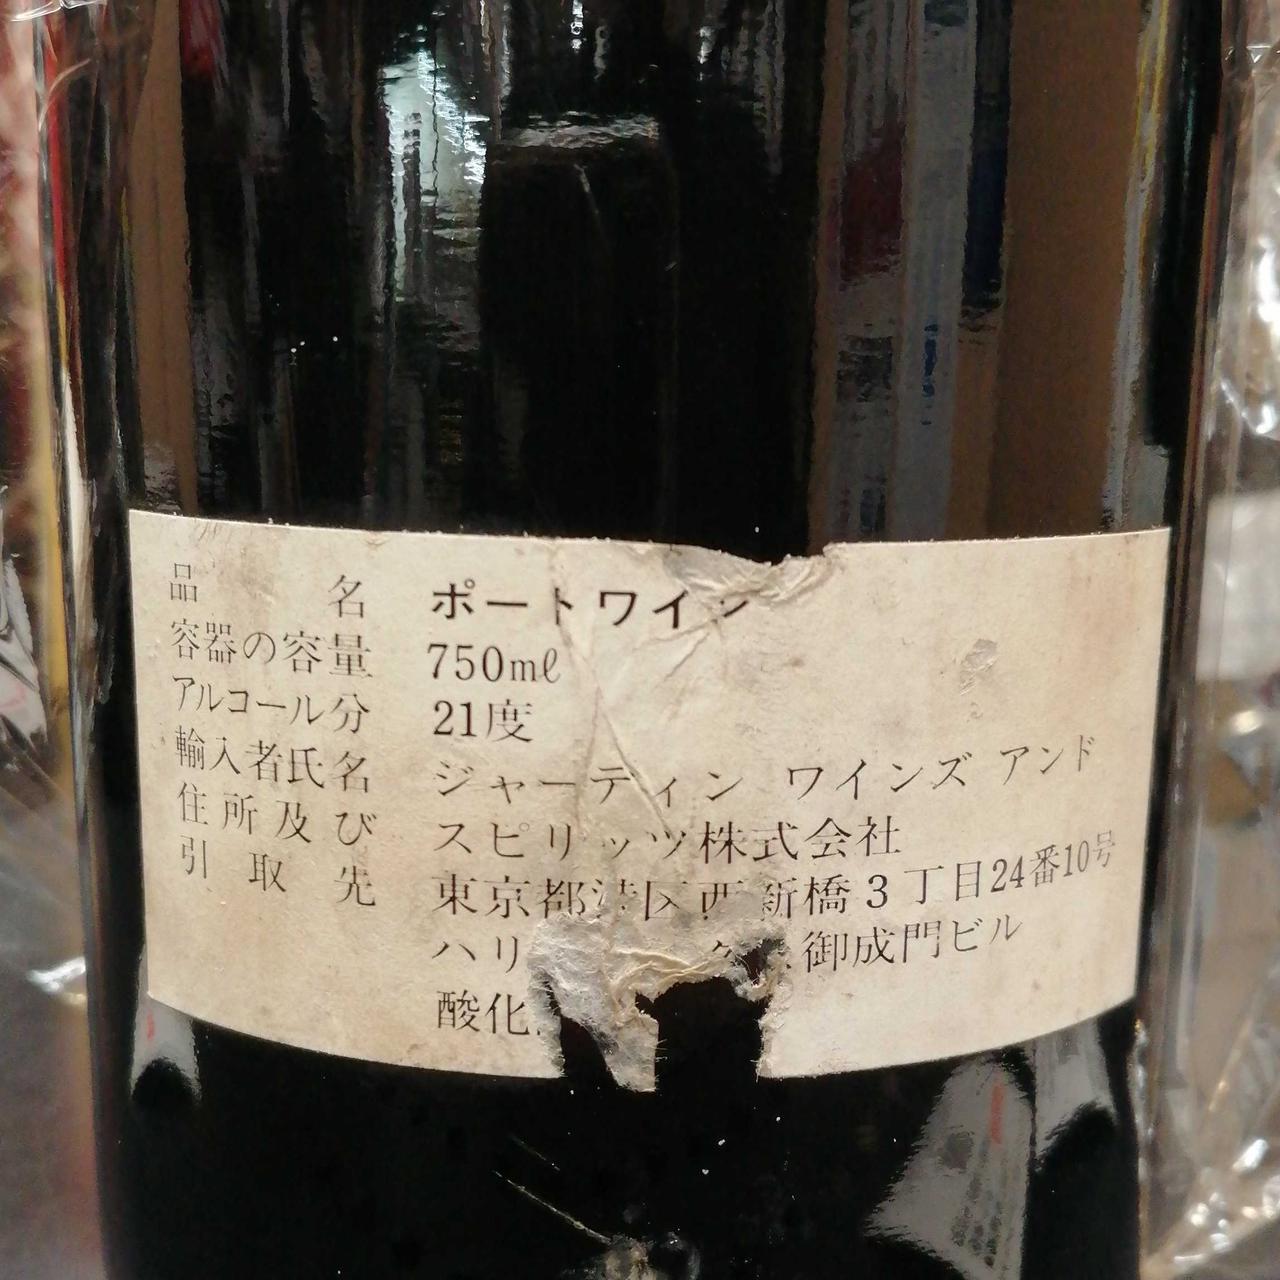 品名 ポートワイン
容器の容量 750mℓ
アルコール分 21度
輸入者氏名 ジャーディン ワインズ アンド
住所及び スピリッツ株式会社
引取先 東京都港区西新橋3丁目24番10号
ハリ 御成門ビル
酸化